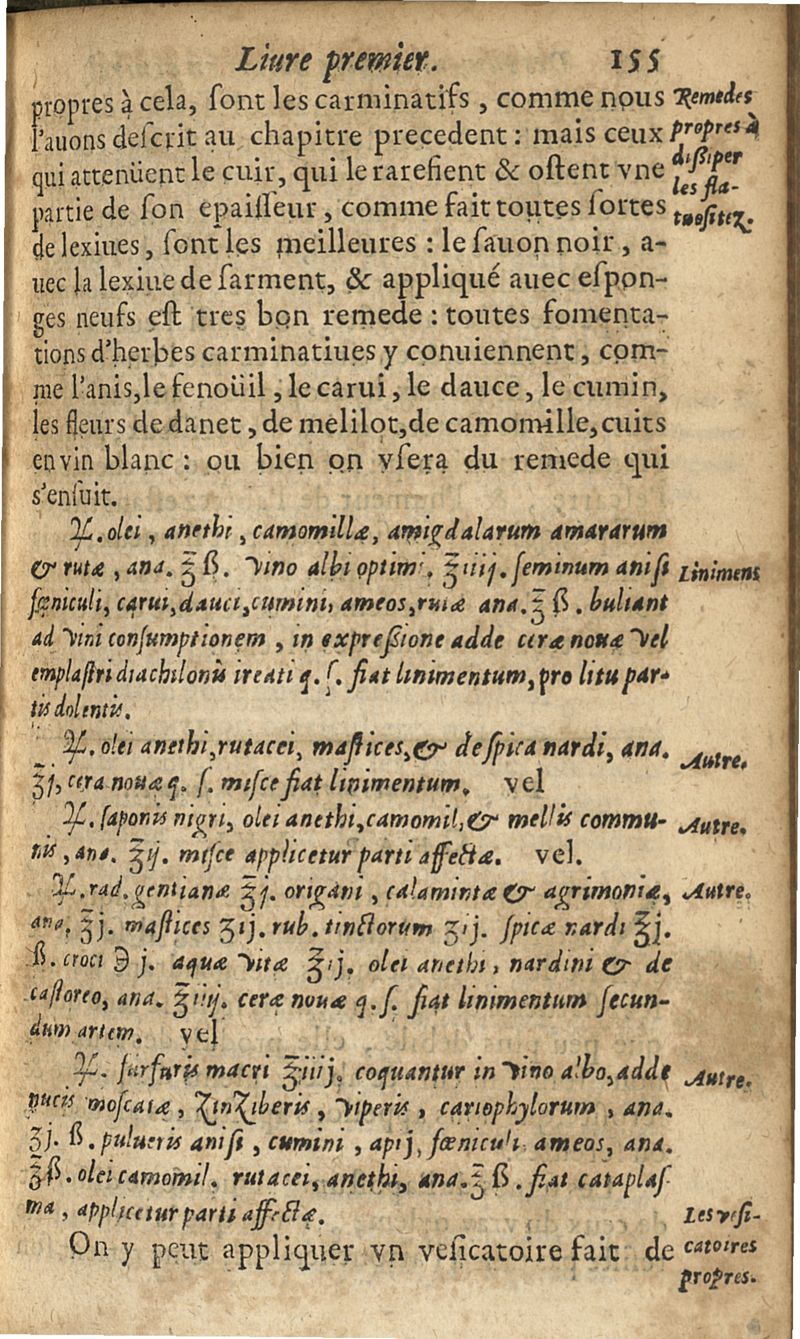 Liure premier. 155
propres à cela, ſont les carminatifs, comme nous
l'auons deſcrit au chapitre precedent : mais ceux
qui attenüent le cuir, qui le rarefient & oſtent vne
partie de ſon epaiſſeur, comme fait toutes ſortes
de lexiues, ſont les meilleures : le ſauon noir, a-
uec la lexiue de ſarment, & appliqué auec eſpon-
ges neufs eſt tres bon remede : toutes fomenta-
tions d'herbes carminatiues y conuiennent, com-
me l'anis, le fenoüil, le carui, le dauce, le cumin,
les fleurs de danet, de melilot, de camomille, cuits
en vin blanc : ou bien on vſera du remede qui
s'enſuit.
Remedes
propres à
diſſiper
les fla-
tuoſitez.
℞. olei, anethi, camomillæ, amigdalarum amararum
& rutæ, ana. ℥ ß. vino albi optimi. ℥iiij. ſeminum aniſi
fœniculi, carui, dauci, cumini, ameos, rutæ ana. ℥ ß. buliant
ad vini conſumptionem, in expreſſione adde ceræ nouæ vel
emplaſtri diachilonis ireati q. ſ. fiat linimentum, pro litu par-
tis dolentis.
Liniment
℞. olei anethi, rutacei, maſtices, & de ſpica nardi, ana.
℥j, cera nouæ q. ſ. miſce fiat linimentum. vel
Autre.
℞. ſaponis nigri, olei anethi, camomil, & mellis commu-
nis, ana. ℥ij. miſce applicetur parti affectæ. vel.
Autre.
℞. rad. gentianæ ℥j. origani, calamintæ & agrimoniæ,
ana. ℥j. maſtices ʒij. rub. tinctorum ʒij. ſpicæ nardi ℥j.
ß. croci ℈ j. aquæ vitæ ℥ij. olei anethi, nardini & de
caſtoreo, ana. ℥iiij. ceræ nouæ q. ſ. fiat linimentum ſecun-
dum artem. vel
Autre.
℞. furfuris macri ℥iiij. coquantur in vino albo, adde
nucis moſcatæ, zinziberis, viperis, cariophylorum, ana.
ʒj. ß. pulueris aniſi, cumini, apij, fœniculi ameos, ana.
℥ß. olei camomil. rutacei, anethi, ana. ℥ ß. fiat cataplaſ-
ma, applicetur parti affectæ.
Autre.
On y peut appliquer vn veſicatoire fait de
Les veſi-
catoires
propres.